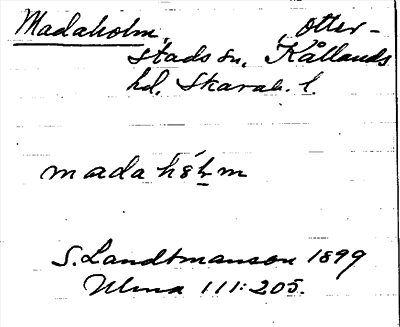 Madaholm, Otter-
stads sn, Kållands
hd, Skarab. l.
mada hólm
S. Landtmanson 1899
Ulma 111:205.